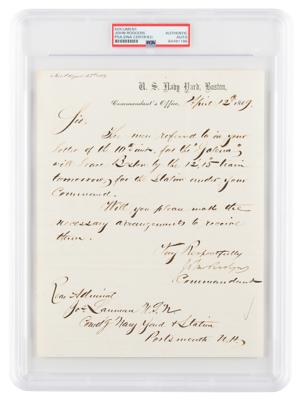 DOCUMENT
JOHN RODGERS
PSA/DNA CERTIFIED
PSA
AUTHENTIC
AUTO
U. S. Navy Yard, Boston,
Commandant's Office, April 12th 1869.
Sir,
The men referred to in your
letter of the 10th inst, for the "Galena"
will leave Boston by the 12.15 train
tomorrow, for the Station under your
Command.
Will you please make the
necessary arrangements to receive
them.
Very Respectfully
John Rodgers
Commandant
Rear Admiral
Jos Lanman U.S.N.
Comd'g Navy Yard & Station
Portsmouth N.H.